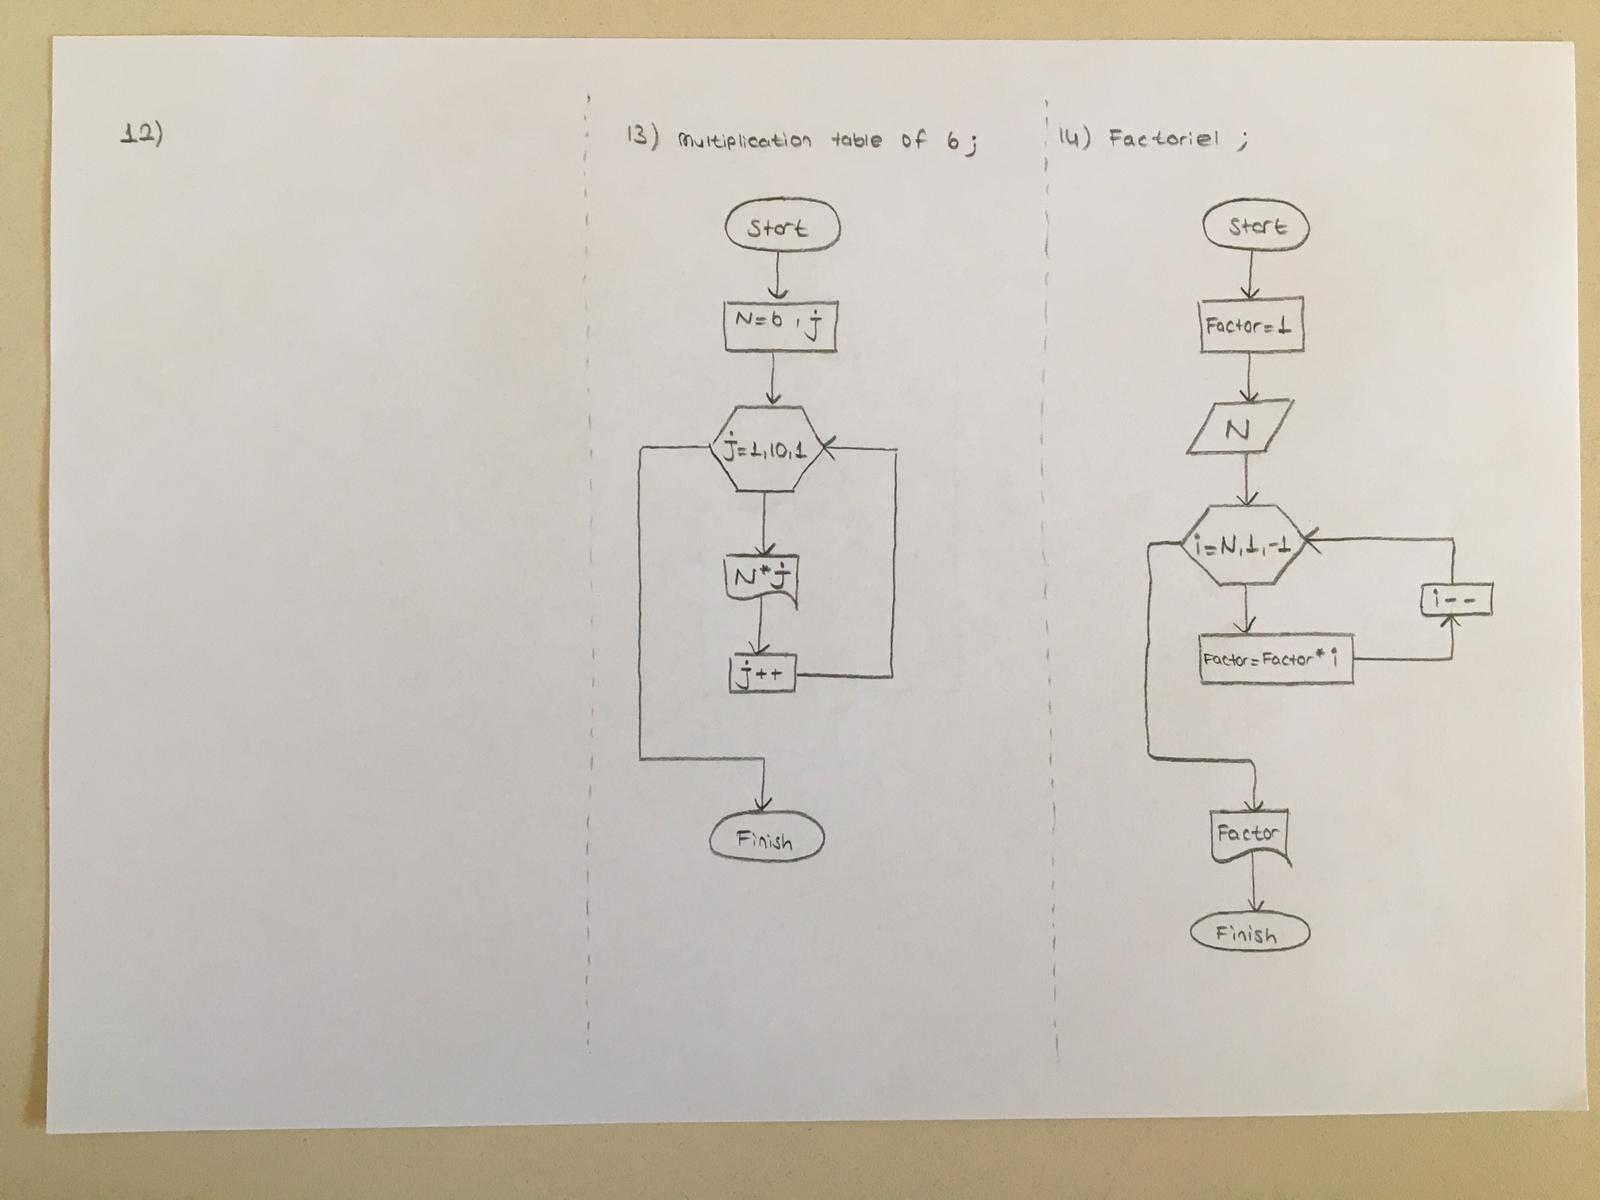 12)
13) Multiplication table of 6;
Start
N=6, j
j=1,10,1
N*j
j++
Finish
14) Factoriel ;
Start
Factor=1
N
i=N,1,-1
i--
Factor=Factor*i
Factor
Finish